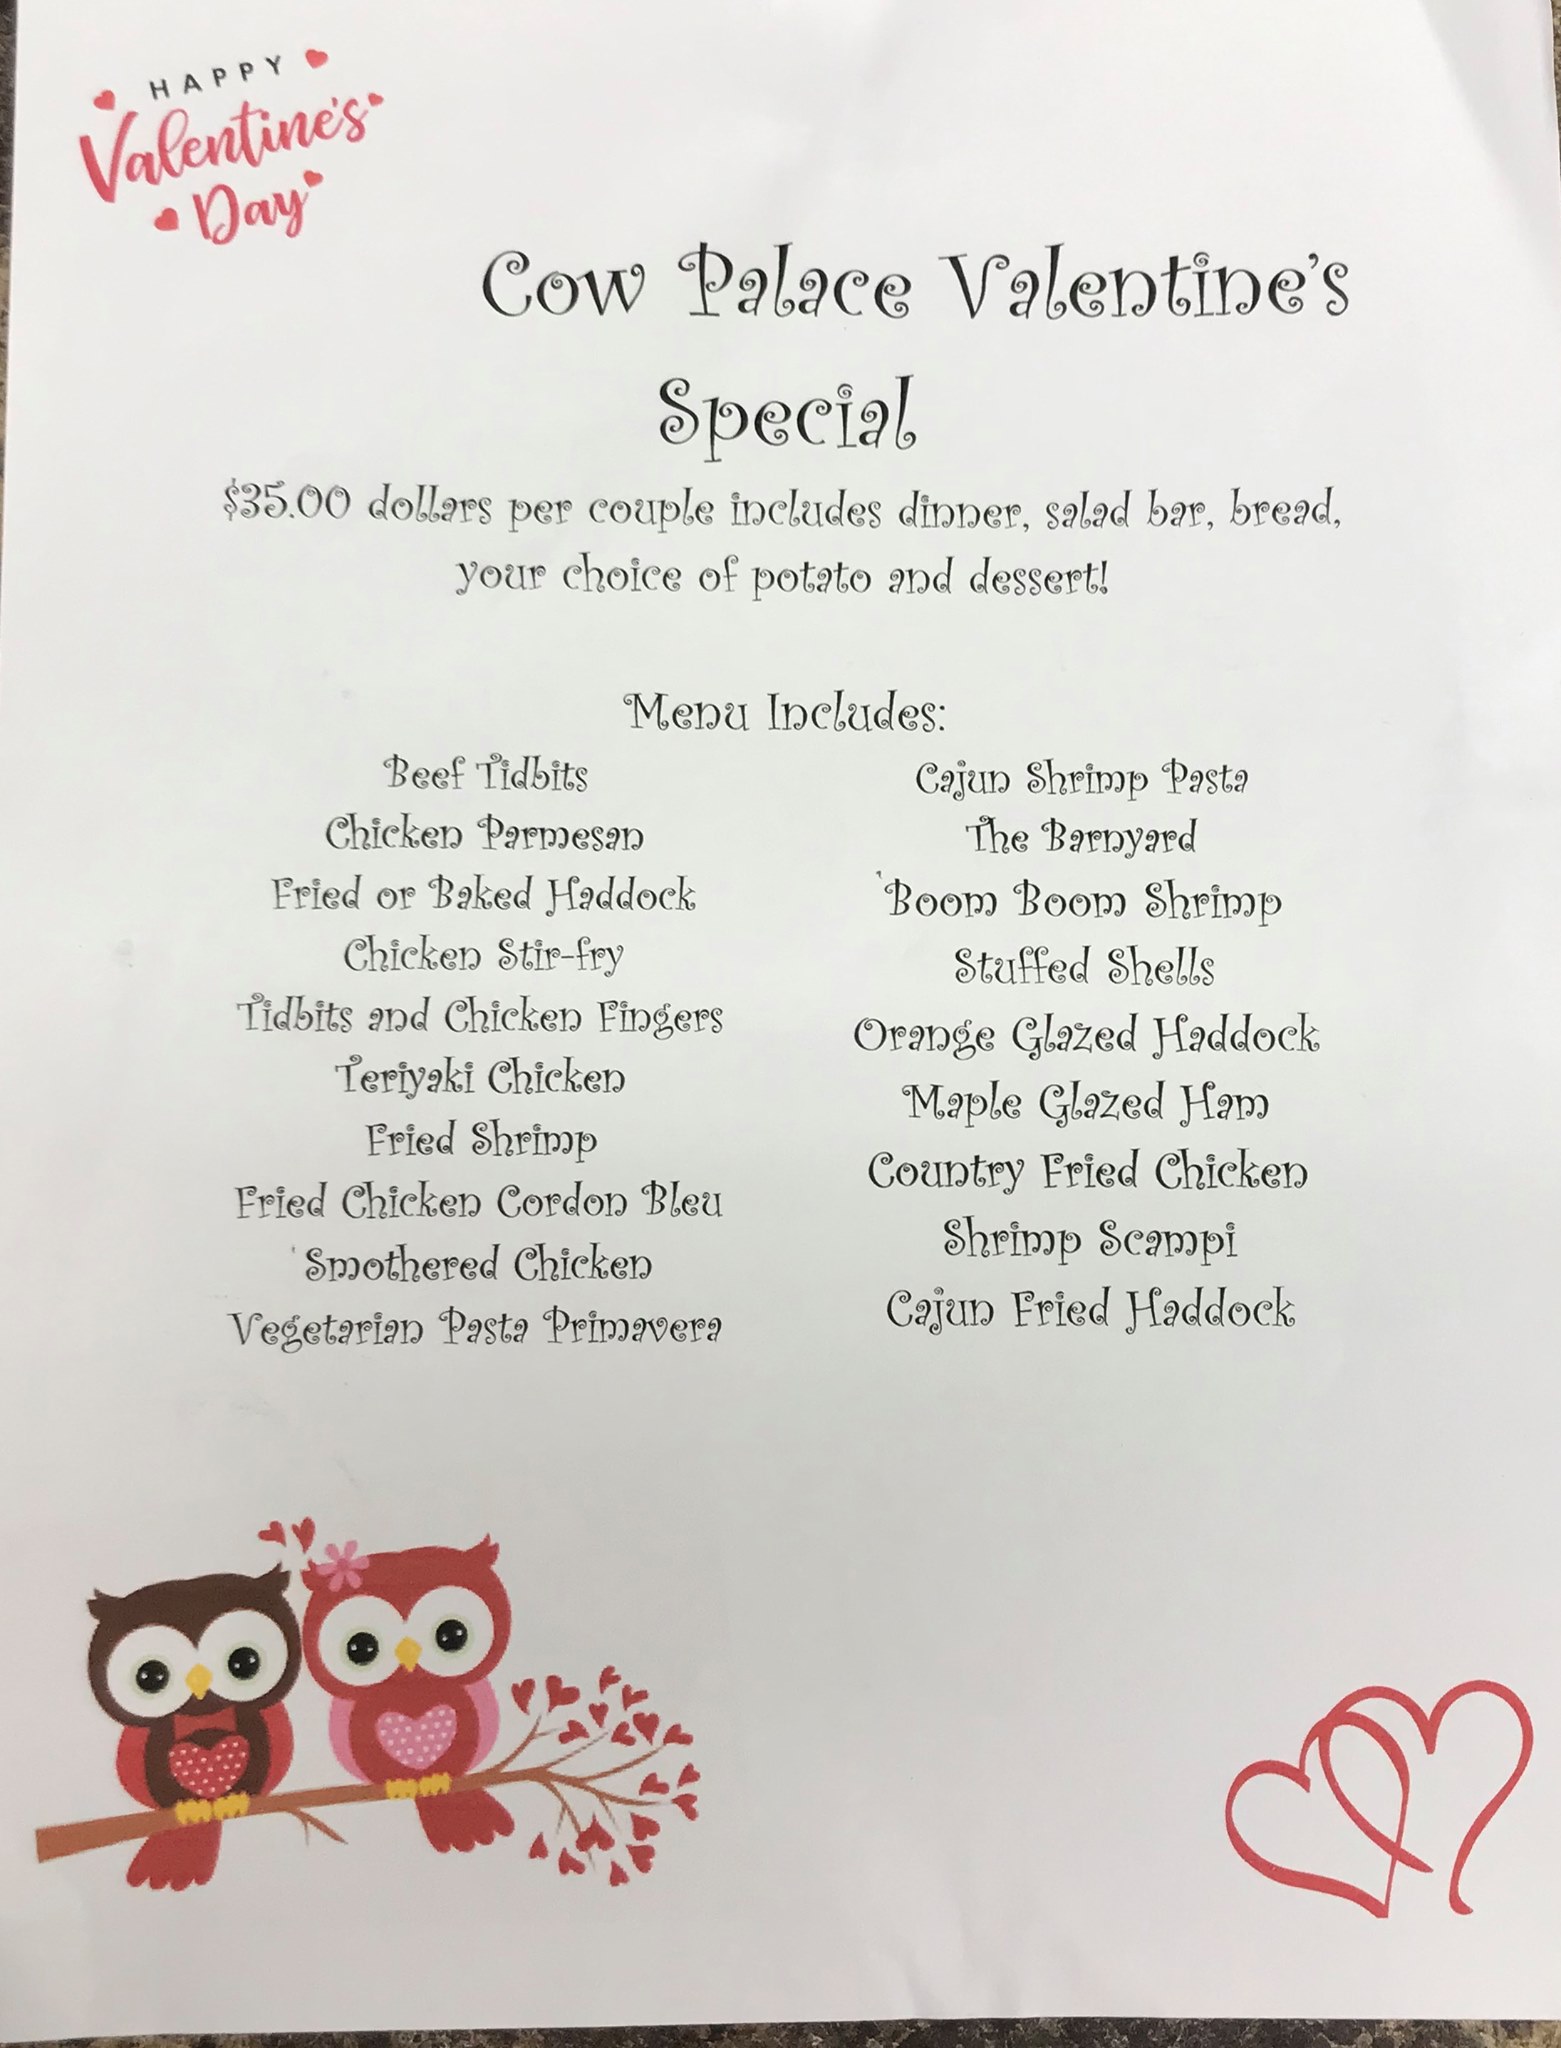 HAPPY
Valentine's
Day
Cow Palace Valentine's
Special
$35.00 dollars per couple includes dinner, salad bar, bread,
your choice of potato and dessert!
Menu Includes:
Beef Tidbits
Chicken Parmesan
Fried or Baked Haddock
Chicken Stir-fry
Tidbits and Chicken Fingers
Teriyaki Chicken
Fried Shrimp
Fried Chicken Cordon Bleu
Smothered Chicken
Vegetarian Pasta Primavera
Cajun Shrimp Pasta
The Barnyard
Boom Boom Shrimp
Stuffed Shells
Orange Glazed Haddock
Maple Glazed Ham
Country Fried Chicken
Shrimp Scampi
Cajun Fried Haddock